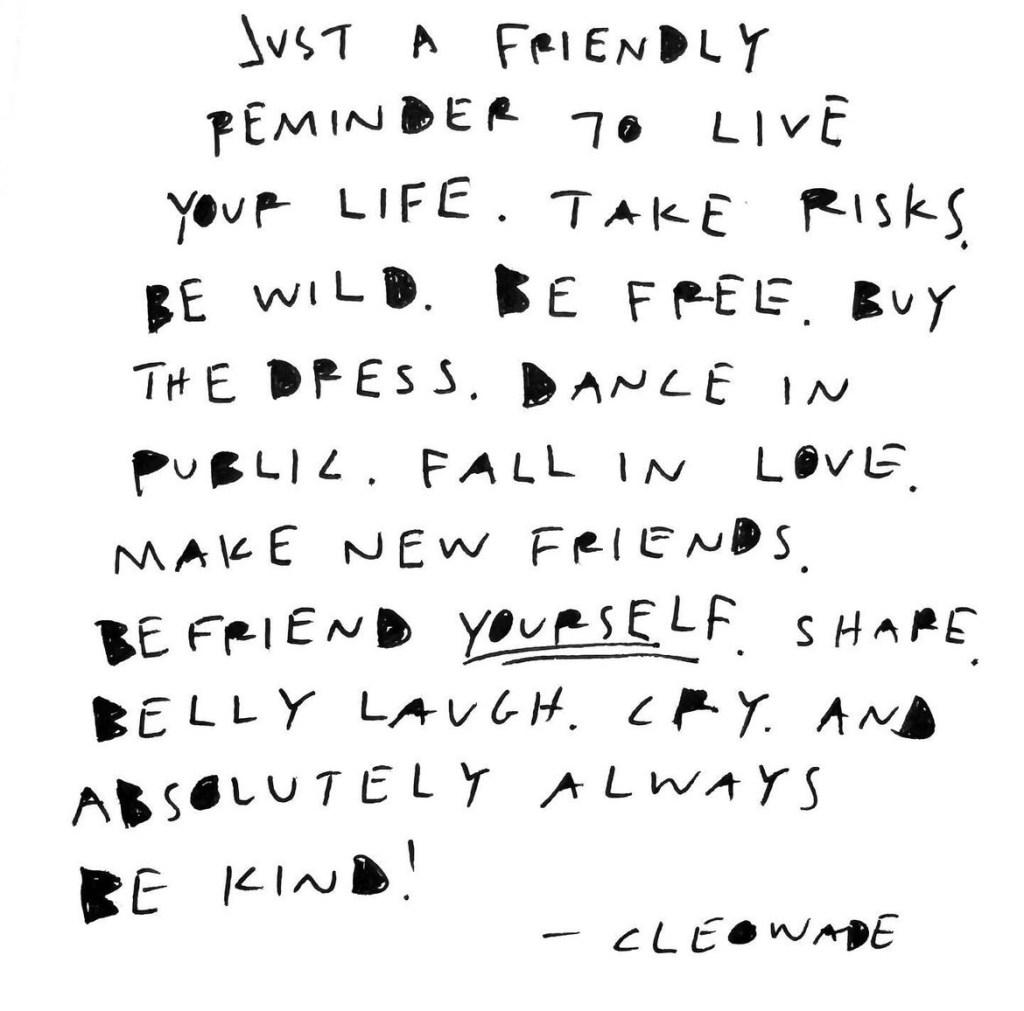 JUST A FRIENDLY
REMINDER TO LIVE
YOUR LIFE. TAKE RISKS.
BE WILD. BE FREE. BUY
THE DRESS. DANCE IN
PUBLIC. FALL IN LOVE.
MAKE NEW FRIENDS.
BEFRIEND YOURSELF. SHARE.
BELLY LAUGH. CRY. AND
ABSOLUTELY ALWAYS
BE KIND!
— CLEOWADE